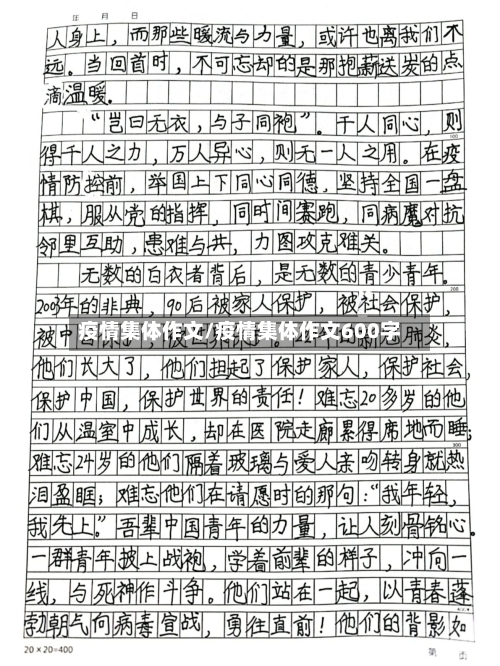 年 月 日
人身上，而那些暖流与力量，或许也离我们不
远。当回首时，不可忘却的是那抱薪送炭的点
滴温暖.
“岂曰无衣，与子同袍”。千人同心，则
得千人之力，万人异心，则无一人之用。在疫
情防控前，举国上下同心同德，坚持全国一盘
棋，服从党的指挥，同时间赛跑，同病魔对抗
邻里互助，患难与共，力图攻克难关。
无数的白衣者背后，是无数的青少青年。
2003年的非典，90后被家人保护，被社会保护，
疫情集体作文/疫情集体作文600字
肺炎，
他们长大了，他们担起了保护家人，保护社会，
保护中国，保护世界的责任！难忘20多岁的他
们从温室中成长，却在医院走廊累得席地而睡；
难忘24岁的他们隔着玻璃与爱人亲吻转身就热
泪盈眶；难忘他们在请愿时的那句：“我年轻，
我先上。”吾辈中国青年的力量，让人刻骨铭心。
一群青年披上战袍，学着前辈的样子，冲向一
线，与死神作斗争。他们站在一起，以青春蓬
勃朝气向病毒宣战，勇往直前！他们的背影如
20×20=400
第 页
100
200
300